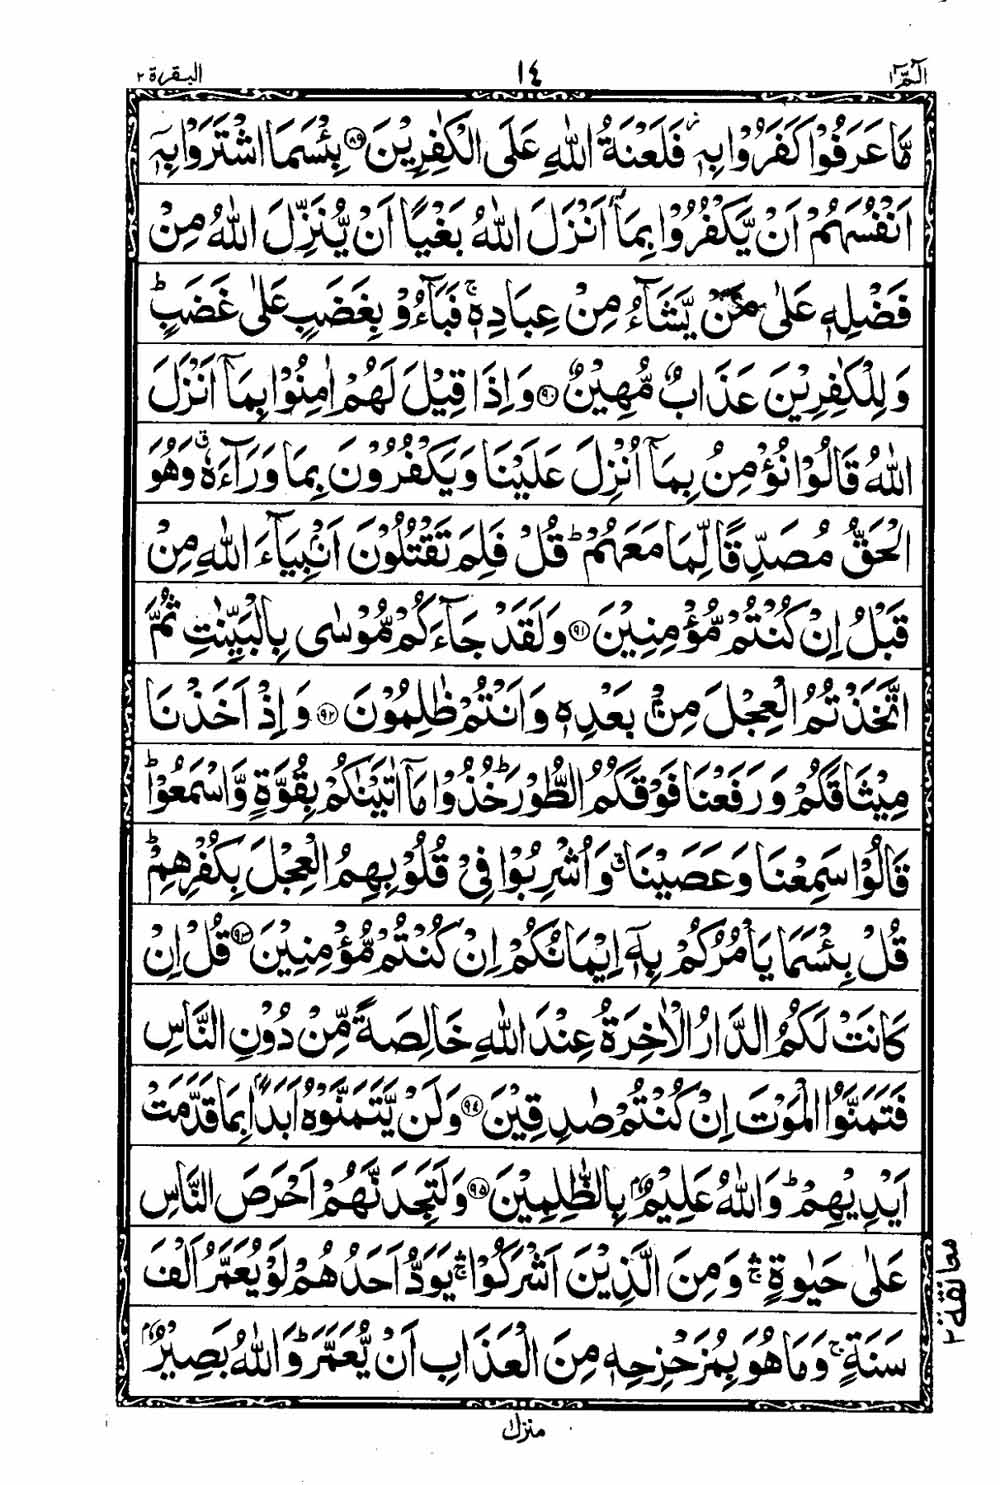 الٓمّٓ ١
١٤
البقرة ٢
مَّا عَرَفُوْا كَفَرُوْا بِهٖ ۫ فَلَعْنَةُ اللّٰهِ عَلَى الْكٰفِرِيْنَ ﴿٨٩﴾ بِئْسَمَا اشْتَرَوْا بِهٖۤ
اَنْفُسَهُمْ اَنْ يَّكْفُرُوْا بِمَاۤ اَنْزَلَ اللّٰهُ بَغْيًا اَنْ يُّنَزِّلَ اللّٰهُ مِنْ
فَضْلِهٖ عَلٰى مَنْ يَّشَآءُ مِنْ عِبَادِهٖ ۚ فَبَآءُوْ بِغَضَبٍ عَلٰى غَضَبٍ ؕ
وَلِلْكٰفِرِيْنَ عَذَابٌ مُّهِيْنٌ ﴿٩٠﴾ وَاِذَا قِيْلَ لَهُمْ اٰمِنُوْا بِمَاۤ اَنْزَلَ
اللّٰهُ قَالُوْا نُؤْمِنُ بِمَاۤ اُنْزِلَ عَلَيْنَا وَيَكْفُرُوْنَ بِمَا وَرَآءَهٗ ۗ وَهُوَ
الْحَقُّ مُصَدِّقًا لِّمَا مَعَهُمْ ؕ قُلْ فَلِمَ تَقْتُلُوْنَ اَنْۢبِيَآءَ اللّٰهِ مِنْ
قَبْلُ اِنْ كُنْتُمْ مُّؤْمِنِيْنَ ﴿٩١﴾ وَلَقَدْ جَآءَكُمْ مُّوْسٰى بِالْبَيِّنٰتِ ثُمَّ
اتَّخَذْتُمُ الْعِجْلَ مِنْۢ بَعْدِهٖ وَاَنْتُمْ ظٰلِمُوْنَ ﴿٩٢﴾ وَاِذْ اَخَذْنَا
مِيْثَاقَكُمْ وَرَفَعْنَا فَوْقَكُمُ الطُّوْرَ ؕ خُذُوْا مَاۤ اٰتَيْنٰكُمْ بِقُوَّةٍ وَّاسْمَعُوْا ؕ
قَالُوْا سَمِعْنَا وَعَصَيْنَا ۗ وَاُشْرِبُوْا فِيْ قُلُوْبِهِمُ الْعِجْلَ بِكُفْرِهِمْ ؕ
قُلْ بِئْسَمَا يَاْمُرُكُمْ بِهٖۤ اِيْمَانُكُمْ اِنْ كُنْتُمْ مُّؤْمِنِيْنَ ﴿٩٣﴾ قُلْ اِنْ
كَانَتْ لَكُمُ الدَّارُ الْاٰخِرَةُ عِنْدَ اللّٰهِ خَالِصَةً مِّنْ دُوْنِ النَّاسِ
فَتَمَنَّوُا الْمَوْتَ اِنْ كُنْتُمْ صٰدِقِيْنَ ﴿٩٤﴾ وَلَنْ يَّتَمَنَّوْهُ اَبَدًۢا بِمَا قَدَّمَتْ
اَيْدِيْهِمْ ؕ وَاللّٰهُ عَلِيْمٌۢ بِالظّٰلِمِيْنَ ﴿٩٥﴾ وَلَتَجِدَنَّهُمْ اَحْرَصَ النَّاسِ
عَلٰى حَيٰوةٍ ۛۚ وَمِنَ الَّذِيْنَ اَشْرَكُوْا ۛۚ يَوَدُّ اَحَدُهُمْ لَوْ يُعَمَّرُ اَلْفَ
سَنَةٍ ۚ وَمَا هُوَ بِمُزَحْزِحِهٖ مِنَ الْعَذَابِ اَنْ يُّعَمَّرَ ؕ وَاللّٰهُ بَصِيْرٌۢ
معانقة ٢
منزل ١